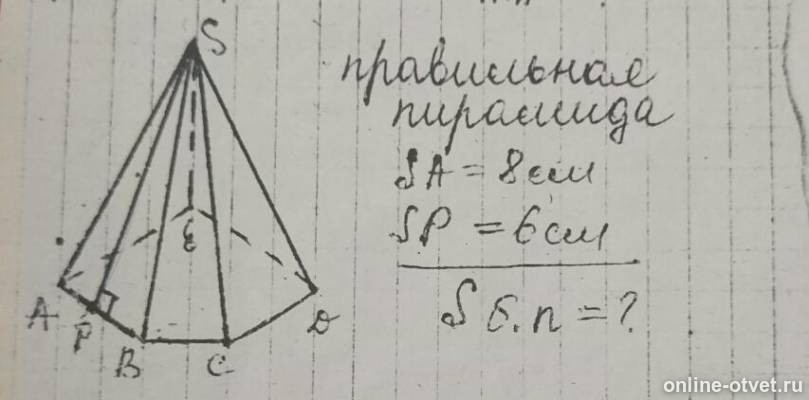 S
правильная
пирамида
SA = 8 см
SP = 6 см
S б.п = ?
E
A
P
B
C
D
online-otvet.ru